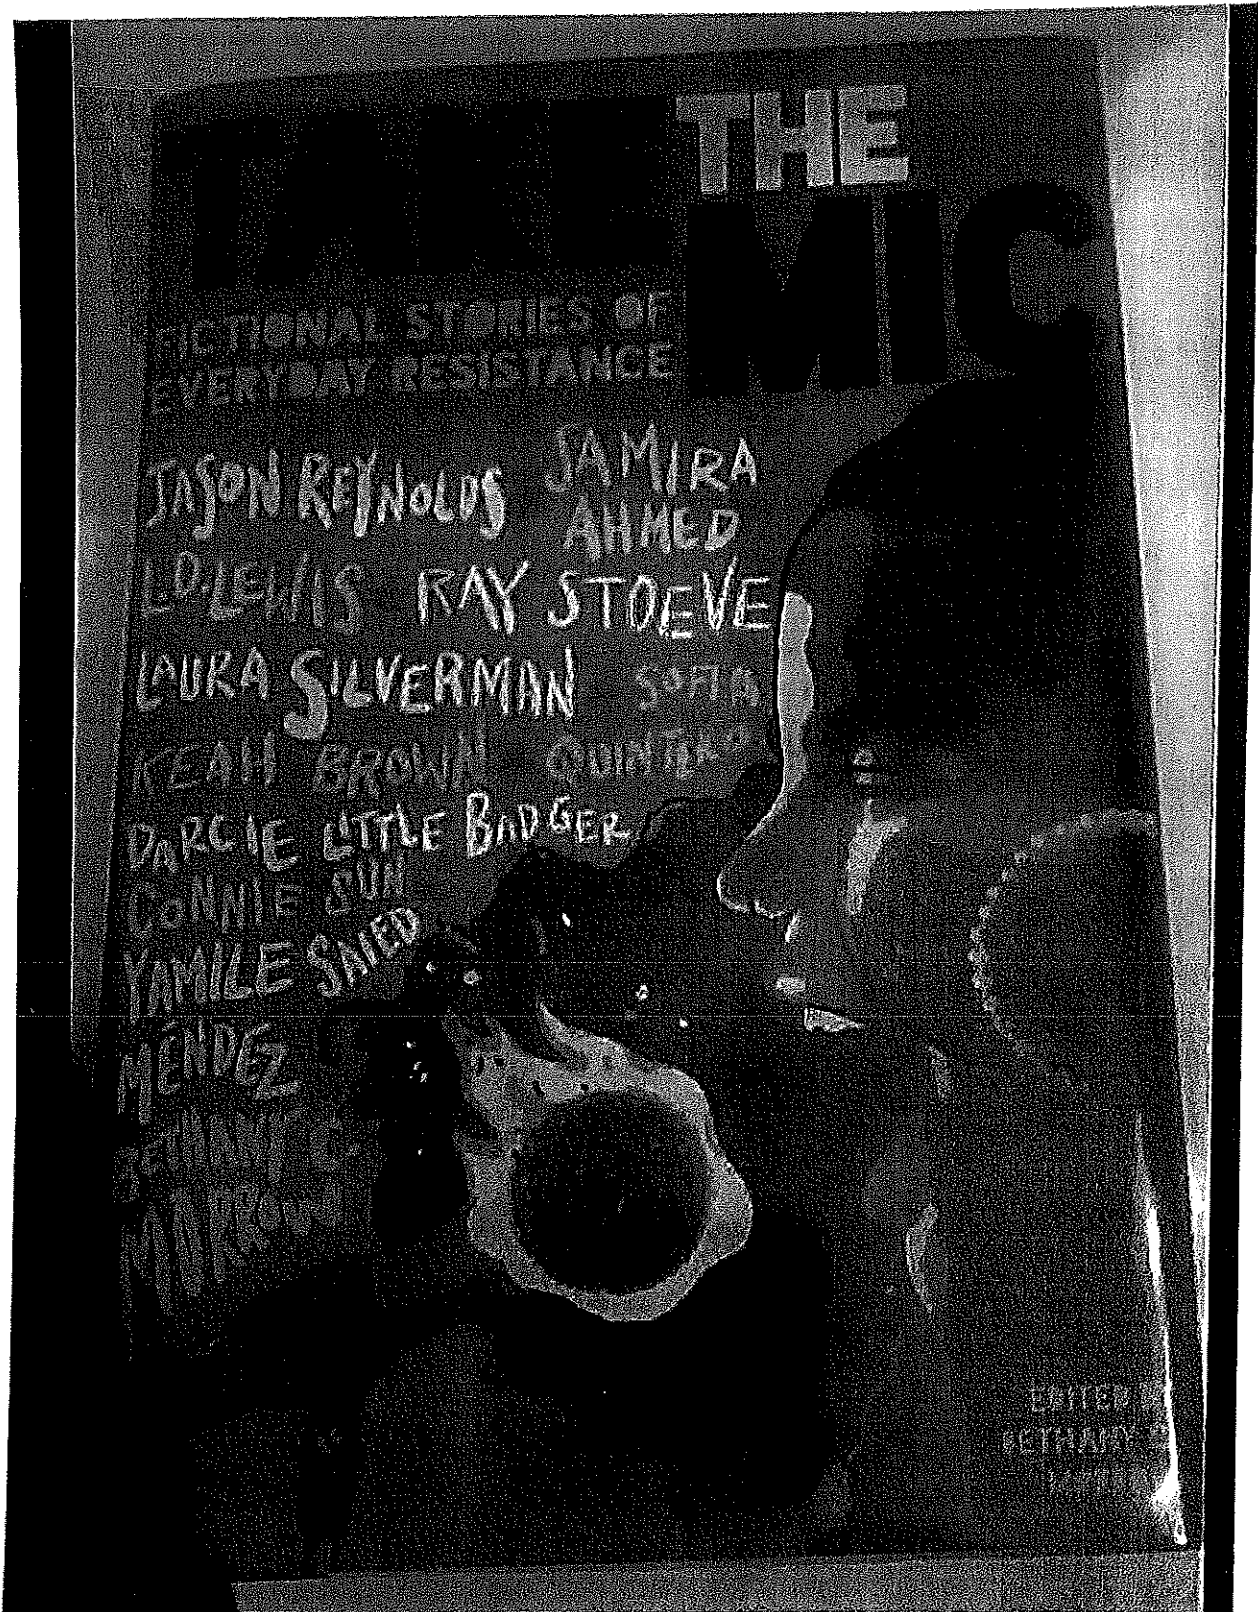 TAKE THE MIC
FICTIONAL STORIES OF
EVERYDAY RESISTANCE
JASON REYNOLDS SAMIRA AHMED
L.D. LEWIS RAY STOEVE
LAURA SILVERMAN SOFIA QUINTERO
KEAH BROWN
DARCIE LITTLE BADGER
CONNIE SUN
YAMILE SAIED
MENDEZ
BETHANY C.
MORROW
EDITED BY
BETHANY C.